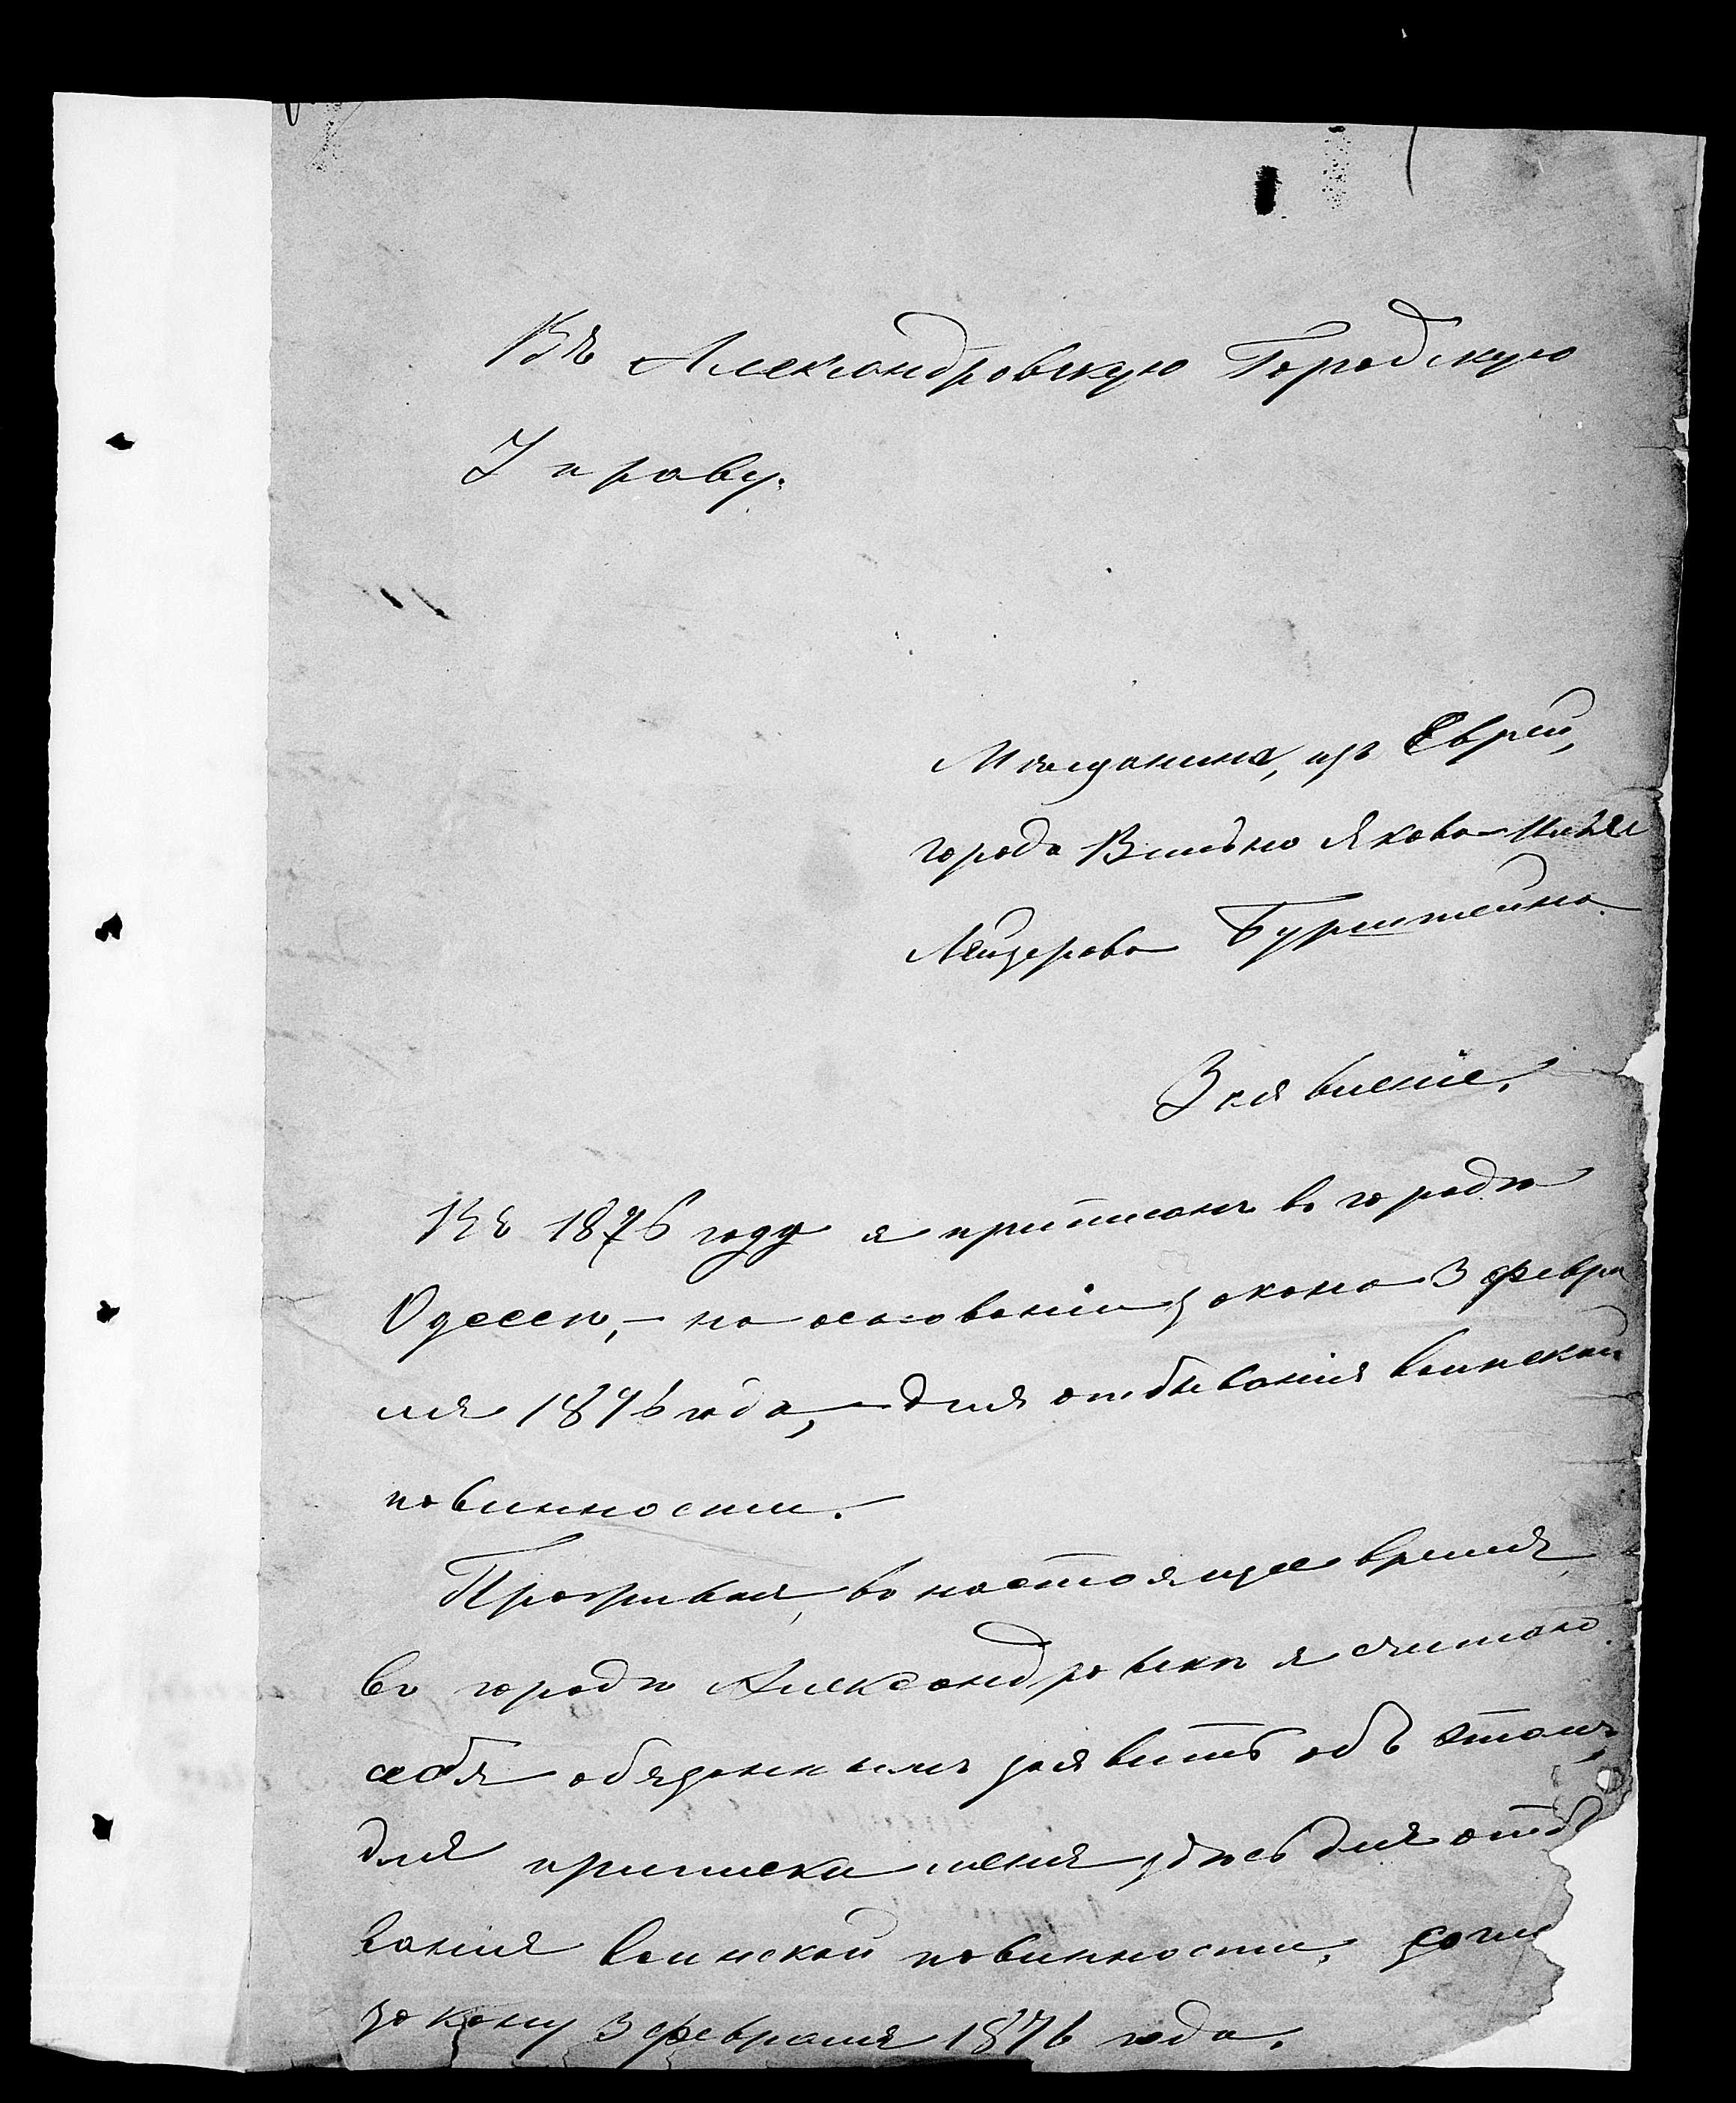 Въ Александровскую Городскую
Управу.
Мѣщанина, изъ Еврей,
города Вильно Якова
Лейзерова Бурштейна
Заявленіе.
Въ 1876 году я приписанъ въ городѣ
Одессѣ, – на основаніи закона 3 февра
ля 1876 года, – для отбыванія воинской
повинности.
Проживая, въ настоящее время,
въ городѣ Александровскѣ я считаю
себя обязаннымъ заявить объ этомъ,
для приписки меня здѣсь для отбы
ванія воинской повинности,
закону 3 февраля 1876 года.